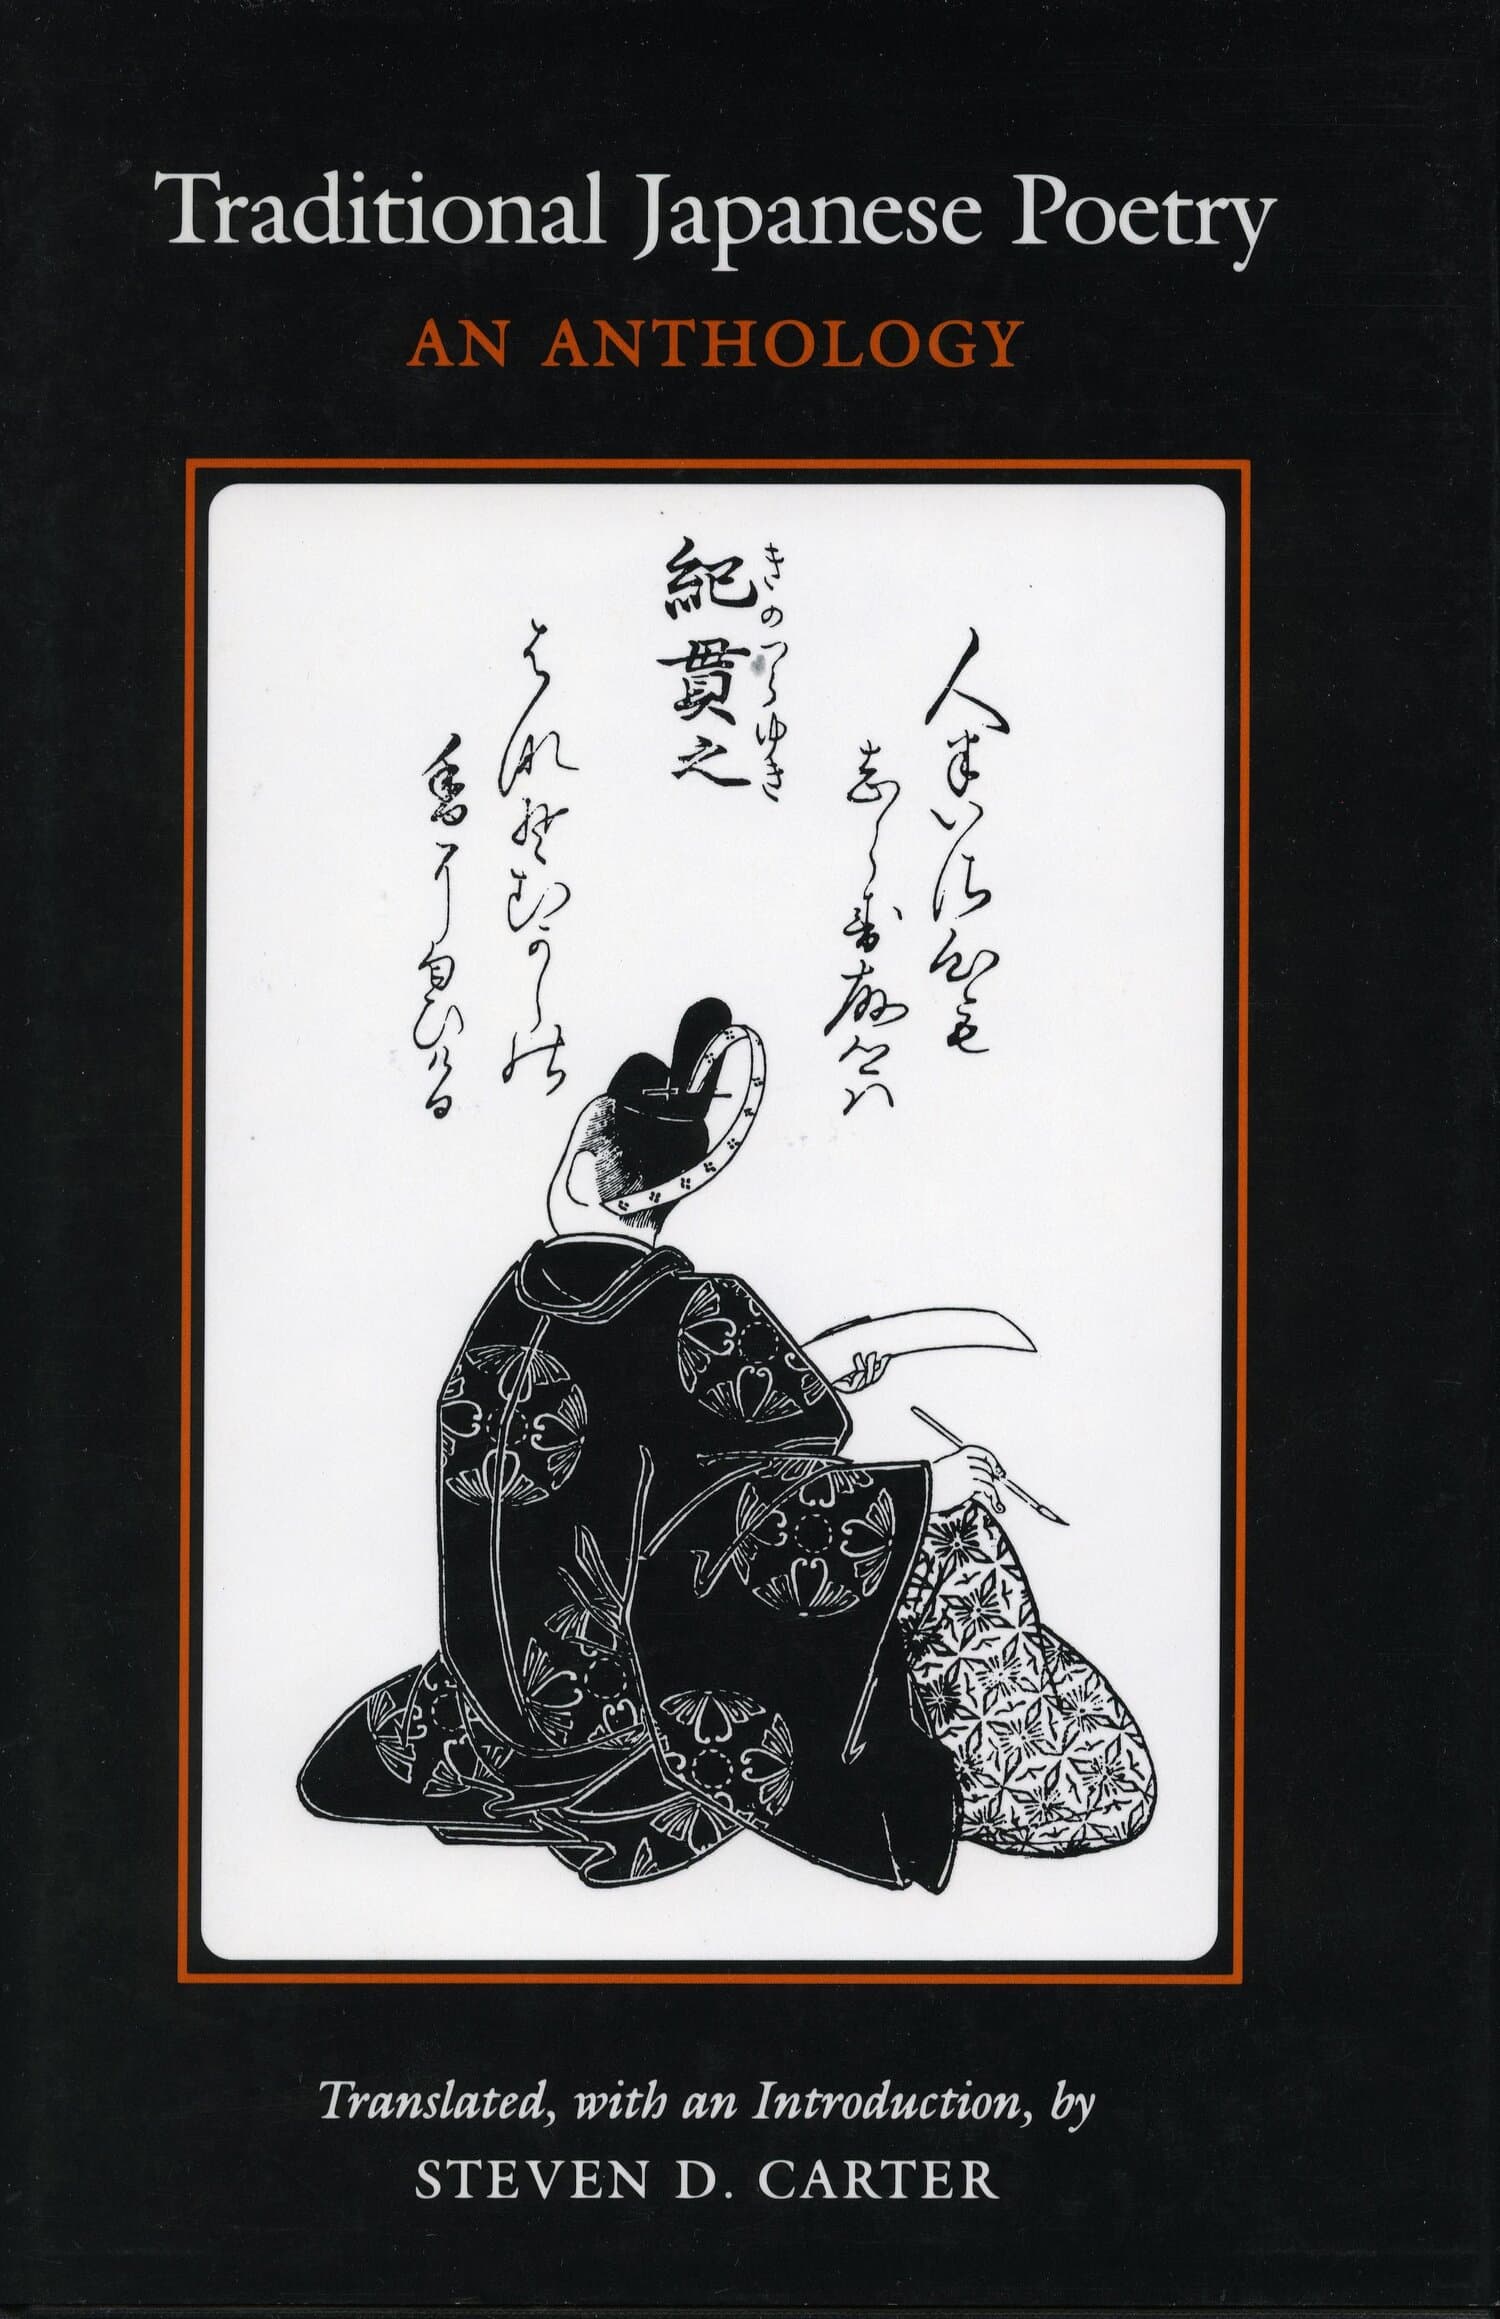 Traditional Japanese Poetry
AN ANTHOLOGY
人はいさ心も
志らず故郷ハ
きのつらゆき
紀貫之
はなぞむかしの
香に匂ひける
Translated, with an Introduction, by
STEVEN D. CARTER